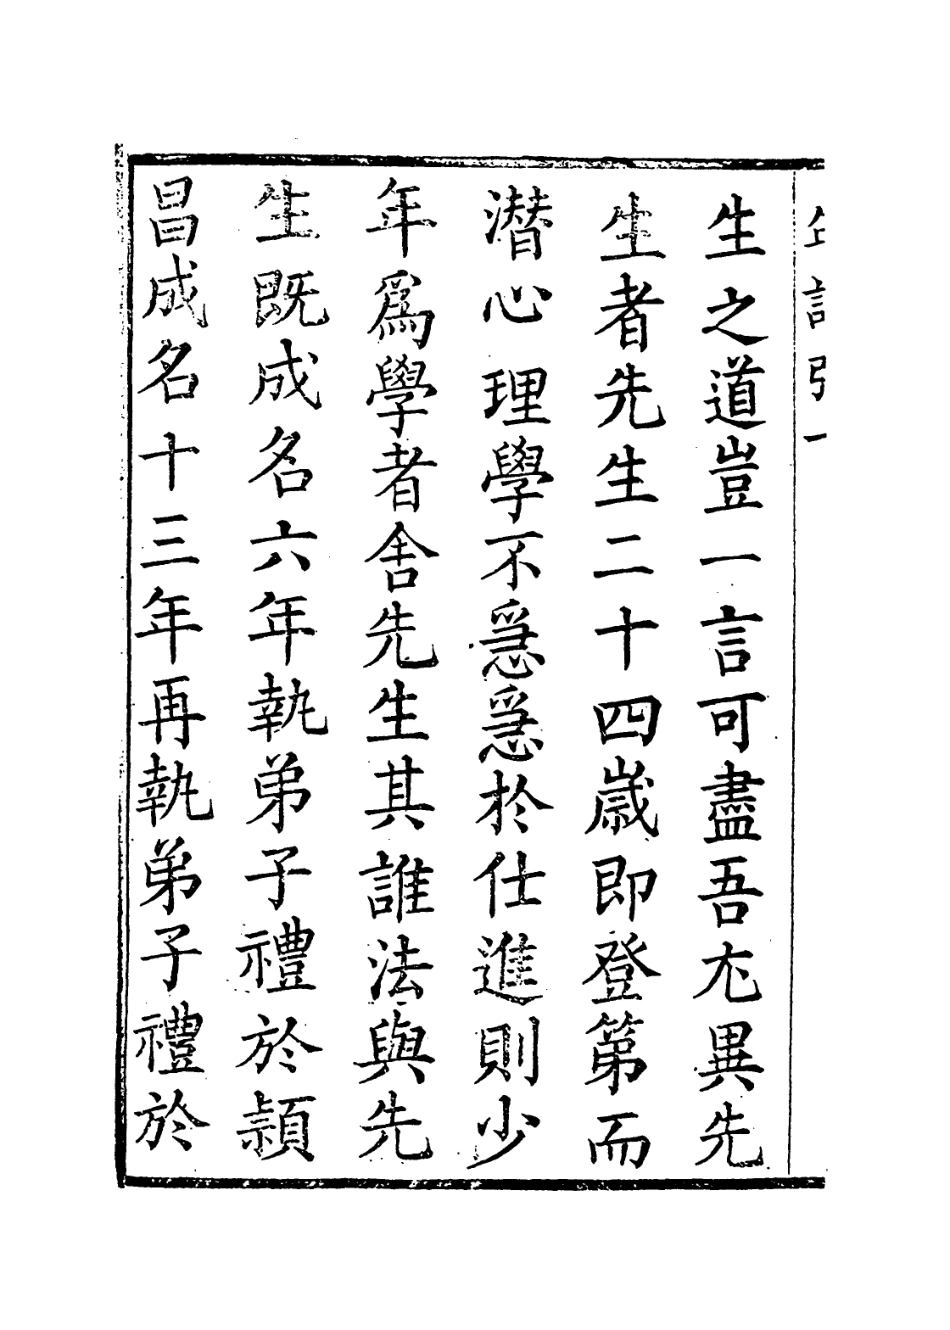 生之道豈一言可盡吾尤異先
生者先生二十四歳即登第而
潛心理學不急急於仕進則少
年爲學者舍先生其誰法與先
生既成名六年執弟子禮於頴
昌成名十三年再執弟子禮於